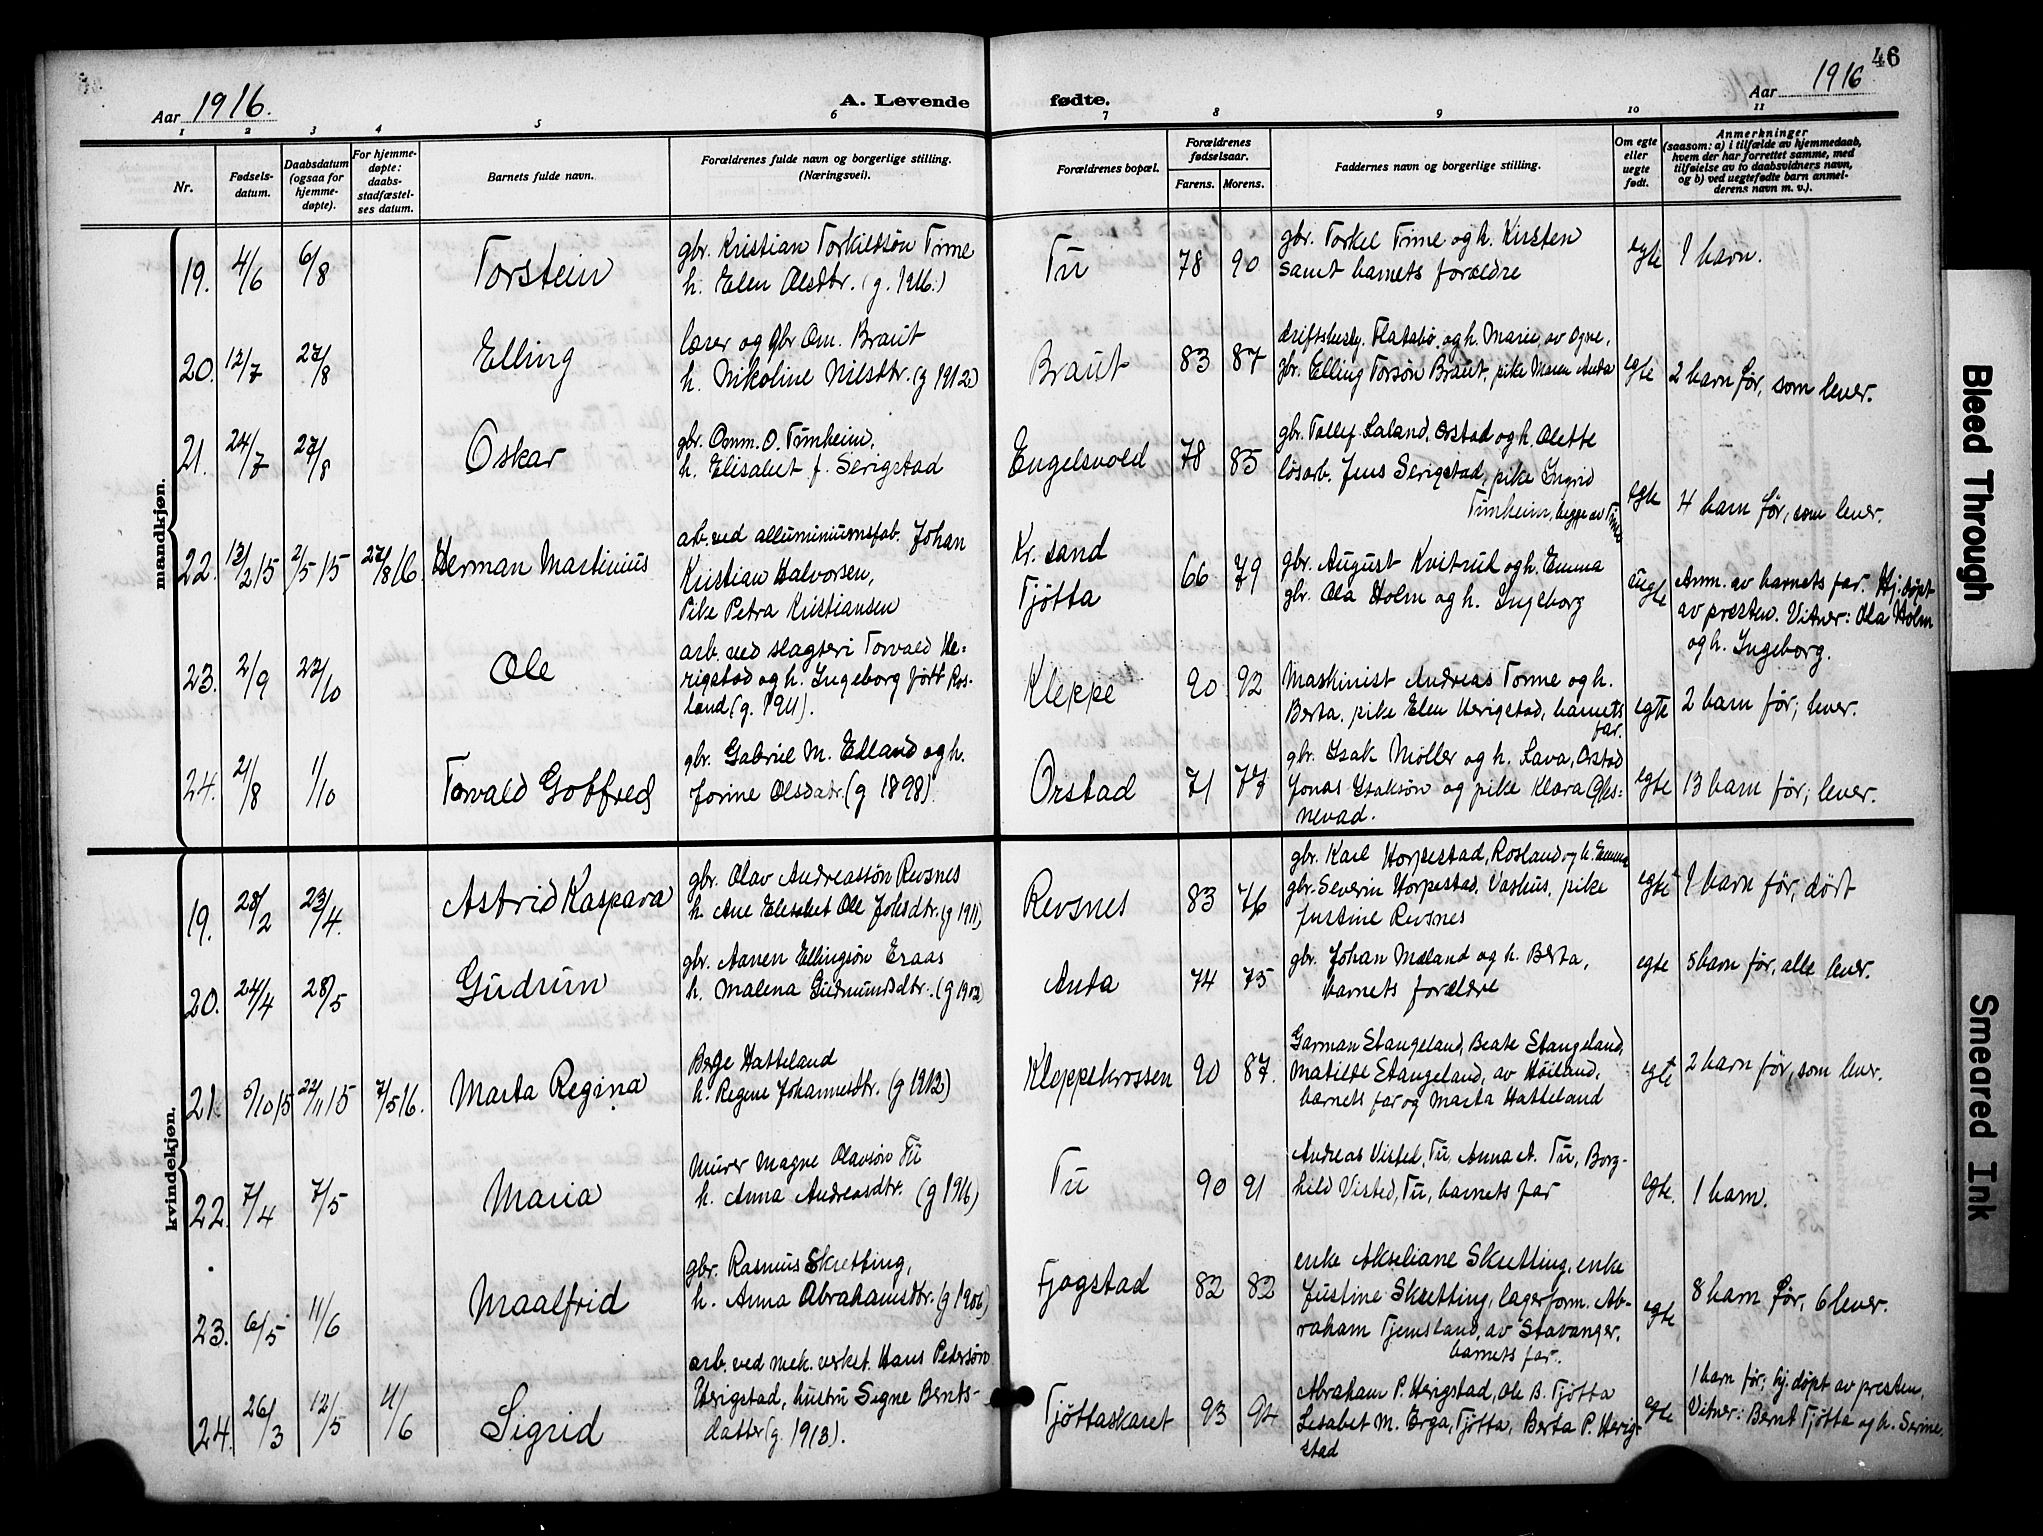 46
Aar 1916.
A. Levende fødte.
Aar 1916
1 2 3 4 5 6 7 8 9 10 11
Nr.
Fødsels-
datum.
Daabsdatum
(ogsaa for
hjemme-
døpte).
For hjemme-
døpte:
daabs-
stadfæstel-
ses datum.
Barnets fulde navn.
Forældrenes fulde navn og borgerlige stilling.
(Næringsvei).
Forældrenes bopæl.
Forældrenes
fødselsaar.
Farens. Morens.
Faddernes navn og borgerlige stilling.
Om egte
eller
uegte
født.
Anmerkninger
(saasom: a) i tilfælde av hjemmedaab,
hvem der har forrettet samme, med
tilføielse av to daabsvidners navn,
og b) ved uegtefødte barn anmel-
derens navn m. v.).
mandkjøn.
19. 4/6 6/8 Torstein
gbr. Kristian Torkildsøn Time
h. Elen Olsdtr. (g. 1916.)
Tu 78 90
gbr. Torkel Time og h. Kirsten
samt barnets forældre
egte 1 barn.
20. 12/7 27/8 Elling
lærer og gbr Om. Braut
h. Nikoline Nilsdtr. (g 1912)
Braut 83 87
driftsbesty. Flatabø og h. Marie, av Ogne,
gbr. Elling Torsøn Braut, pike Maren Anda
egte 2 barn før, som lever.
21. 24/7 27/8 Oskar
gbr. Omm. O. Timheim,
h. Elisabet f. Serigstad
Engelsvold 78 85
gbr. Tollef Laland, Orstad og h. Olette
løsarb. Jens Serigstad, pike Ingrid
Timheim, begge av Time
egte 4 barn før, som lever.
22. 13/2 15 2/5 15 27/8 16. Herman Martinius
arb. ved alluminiumsfab. Johan
Kristian Halvorsen,
Pike Petra Kristiansen
Kr. sand
Tjøtta
66 79
gbr. August Kvitrud og h. Emma
gbr. Ola Holm og h. Ingeborg
uegte
Anm. av barnets far. Hj. døpt
av presten. Vitner: Ola Holm
og h. Ingeborg.
23. 2/9 22/10 Ole
arb. ved slagteri Torvald He-
rigstad og h. Ingeborg født Ros-
land (g. 1911).
Kleppe 90 92
Maskinist Andreas Torme og h.
Berta, pike Elen Herigstad, barnets
far.
egte 2 barn før; lever.
24. 2/8 1/10 Torvald Gottfred
gbr. Gabriel M. Edland og h.
Jorine Olsdatr. (g 1898).
Orstad 71 77
gbr. Isak Møller og h. Lava, Orstad
Jonas Isaksøn og pike Klara Gles-
nevad.
egte 13 barn før; lever.
kvindekjøn.
19. 28/2 23/4. Astrid Kaspara
gbr. Olav Andreassøn Revsnes
h. Ane Elisabet Ole Johsdtr. (g 1911)
Revsnes 83 76
gbr. Karl Horpestad, Rosland og h. Emma
gbr. Severin Horpestad, Vashus, pike
Justine Revsnes
egte 1 barn før, dødt
20. 24/4 28/5 Gudrun
gbr. Aanen Ellingsøn Eraas
h. Malena Gudmundsdtr. (g 1902)
Anda 74 75
gbr. Johan Mæland og h. Berta,
barnets forældre
egte 5 barn før, alle lever.
21. 5/10 15 22/11 15 7/5 16. Marta Regina
Berge Hatteland
h. Regine Johannesdtr. (g 1912)
Kleppekrossen 90 87.
Garman Stangeland, Beate Stangeland,
Matilde Stangeland, av Høiland,
barnets far og Marta Hatteland
egte 2 barn før, som lever.
22. 7/4 7/5 Maria
Murer Magne Olavsøn Tu
h. Anna Andreasdtr. (g 1916)
Tu 90 91
Andreas Visted, Tu, Anna A. Tu, Borg-
hild Visted, Tu, barnets far
egte. 1 barn.
23. 6/5 11/6 Maalfrid
gbr. Rasmus Skretting,
h. Anna Abrahamsdtr. (g 1906)
Fjogstad 82 82
enke Akseliane Skretting, enke
Justine Skretting, lagerform. Ab-
raham Tjemsland, av Stavanger,
barnets far.
egte 8 barn før, 6 lever.
24. 26/3 12/5 11/6 Sigrid
arb. ved mek. verket Hans Pedersøn
Herigstad, hustru Signe Bernts-
datter (g. 1913).
Tjøttaskaret 93 94
Abraham P. Herigstad, Ole B. Tjøtta
Lisabet M. Erga, Tjøtta, Berta P. Herig-
stad
egte
1 barn før; hj. døpt av presten.
Vitner: Bernt Tjøtta og h. Serine.
Bleed Through
Smeared Ink